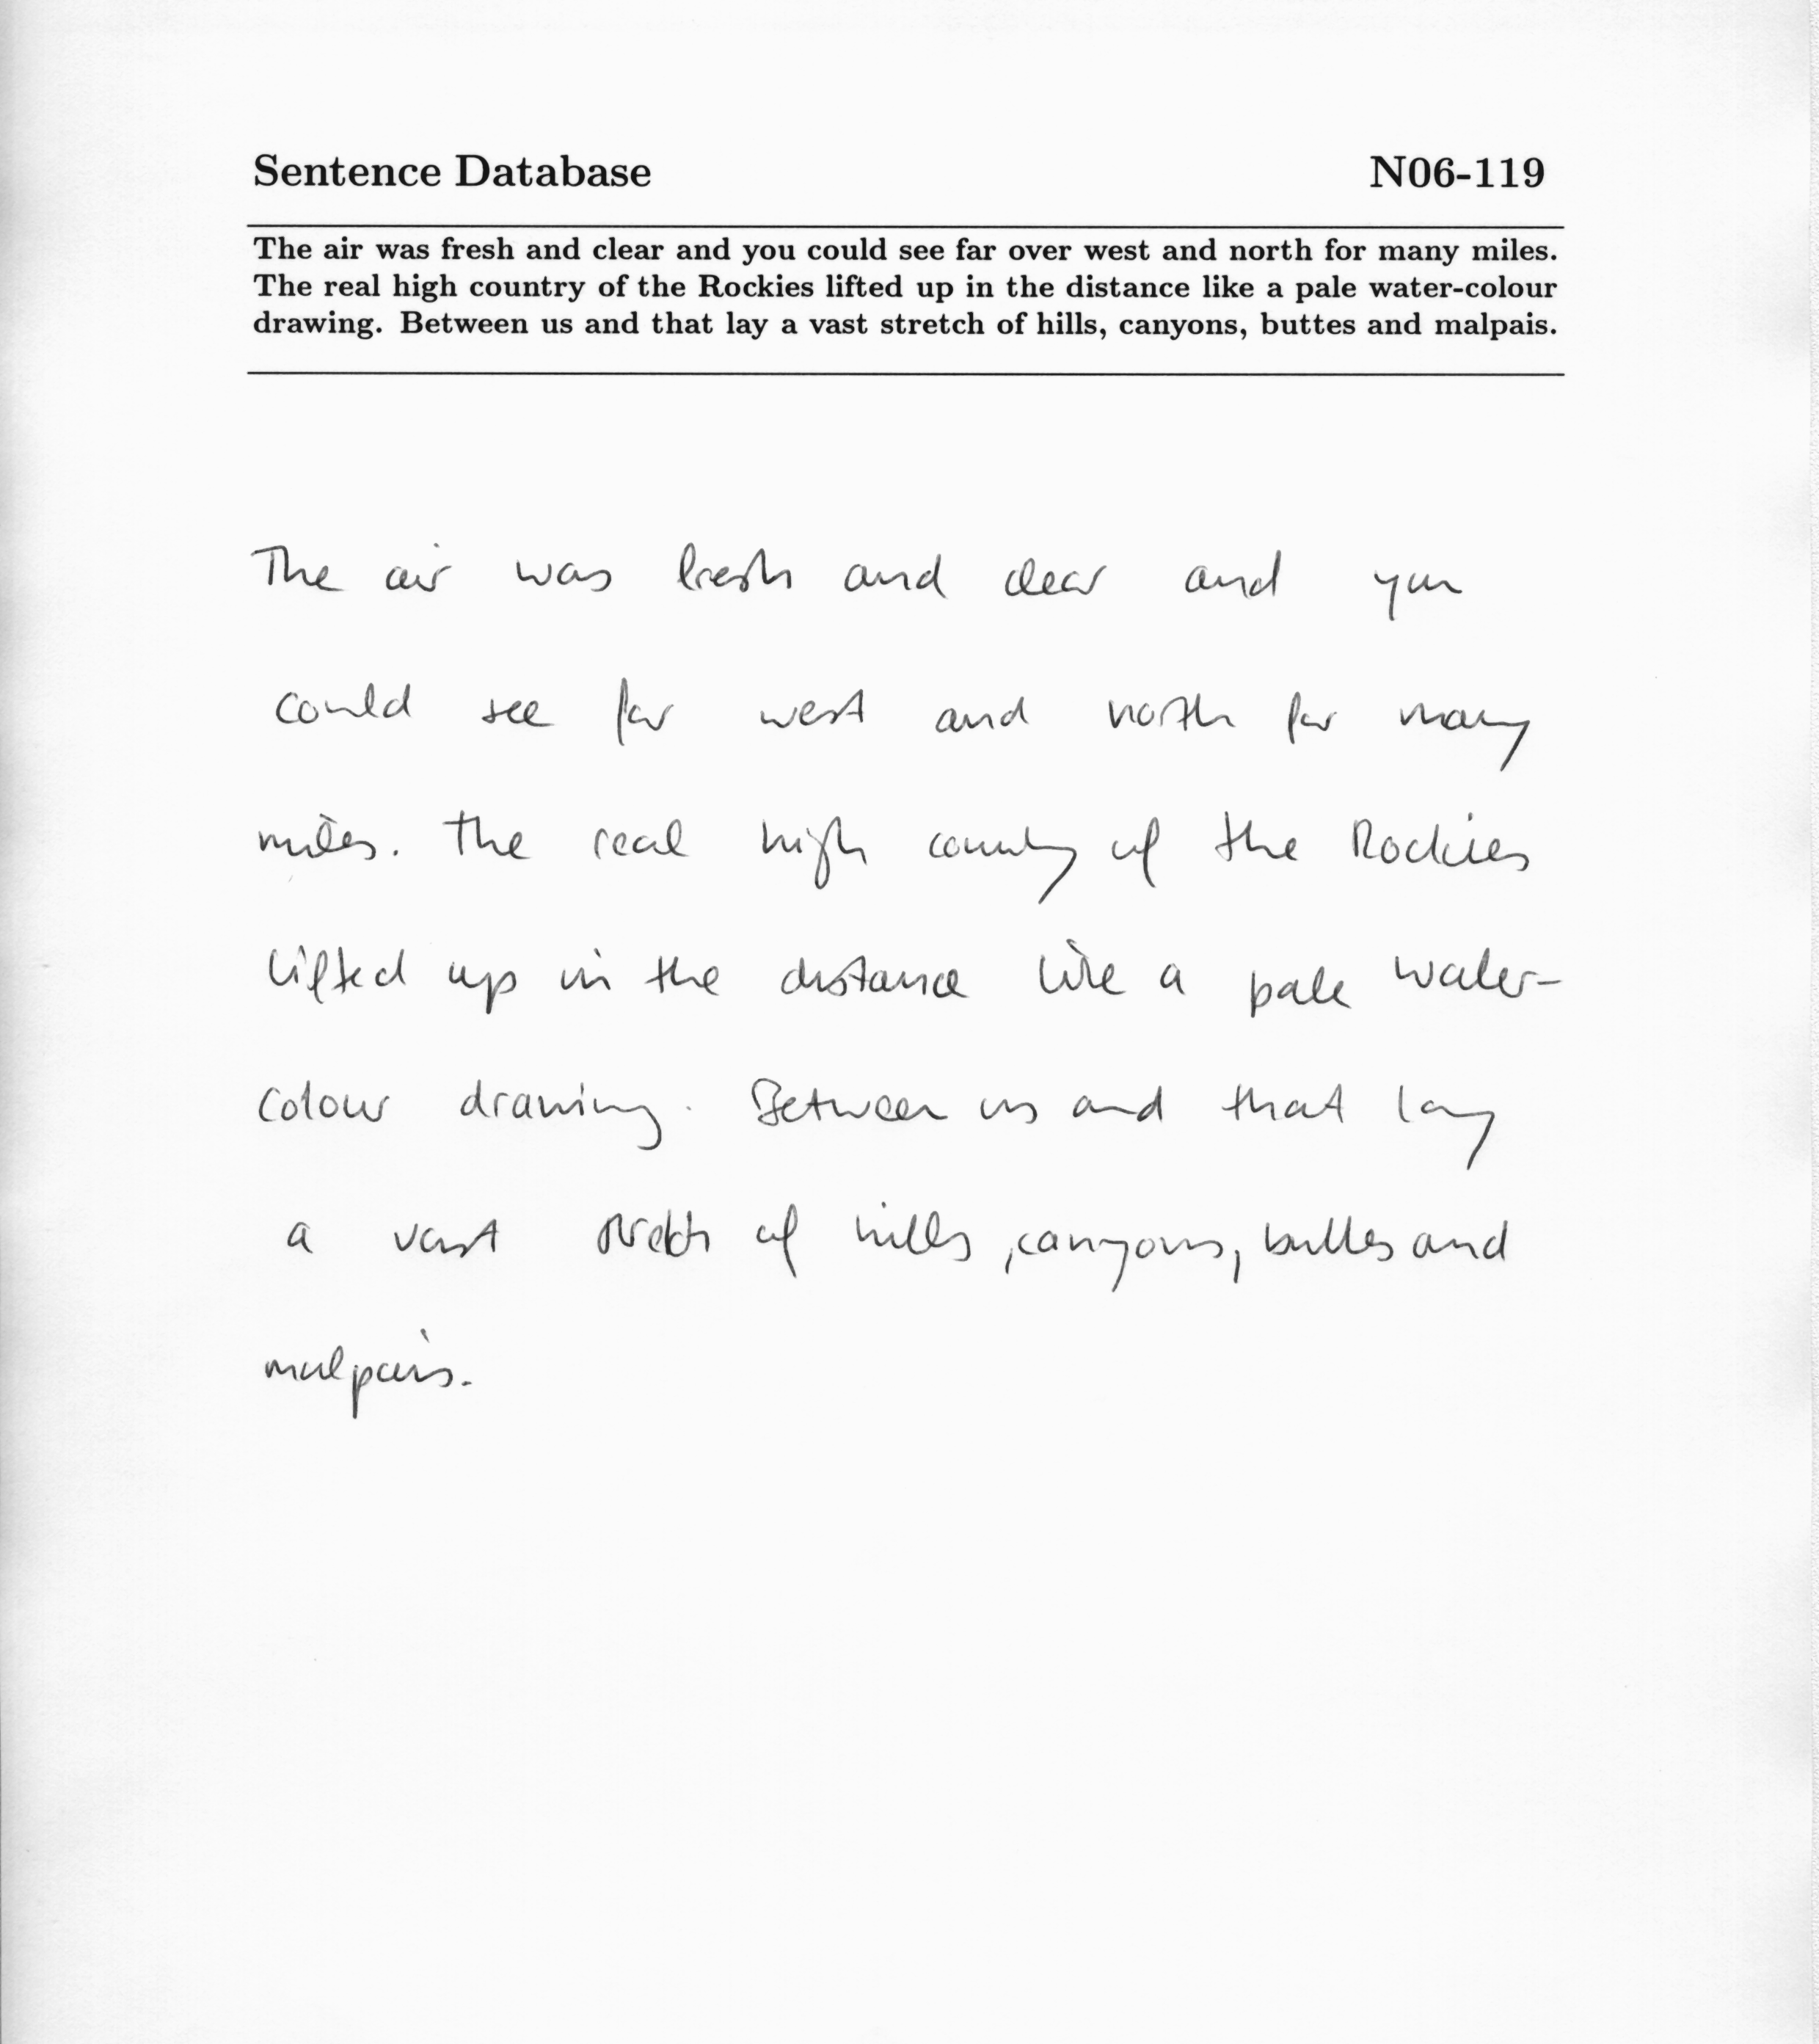 Sentence Database N06-119
The air was fresh and clear and you could see far over west and north for many miles.
The real high country of the Rockies lifted up in the distance like a pale water-colour
drawing. Between us and that lay a vast stretch of hills, canyons, buttes and malpais.
The air was fresh and clear and you
could see far west and north for many
miles. The real high country of the Rockies
lifted up in the distance like a pale water-
colour drawing. Between us and that lay
a vast stretch of hills, canyons, buttes and
malpais.